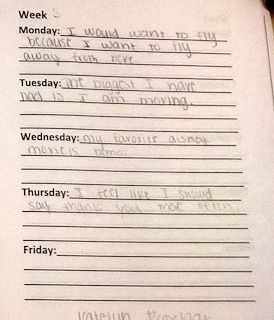 Week 3
Monday: I would want to fly
because I want to fly
away from here
Tuesday: The biggest I have
had is I am moving.
Wednesday: my favorite disney
movie is nemo.
Thursday: I feel like I should
say thank you more often.
Friday:
Katelyn